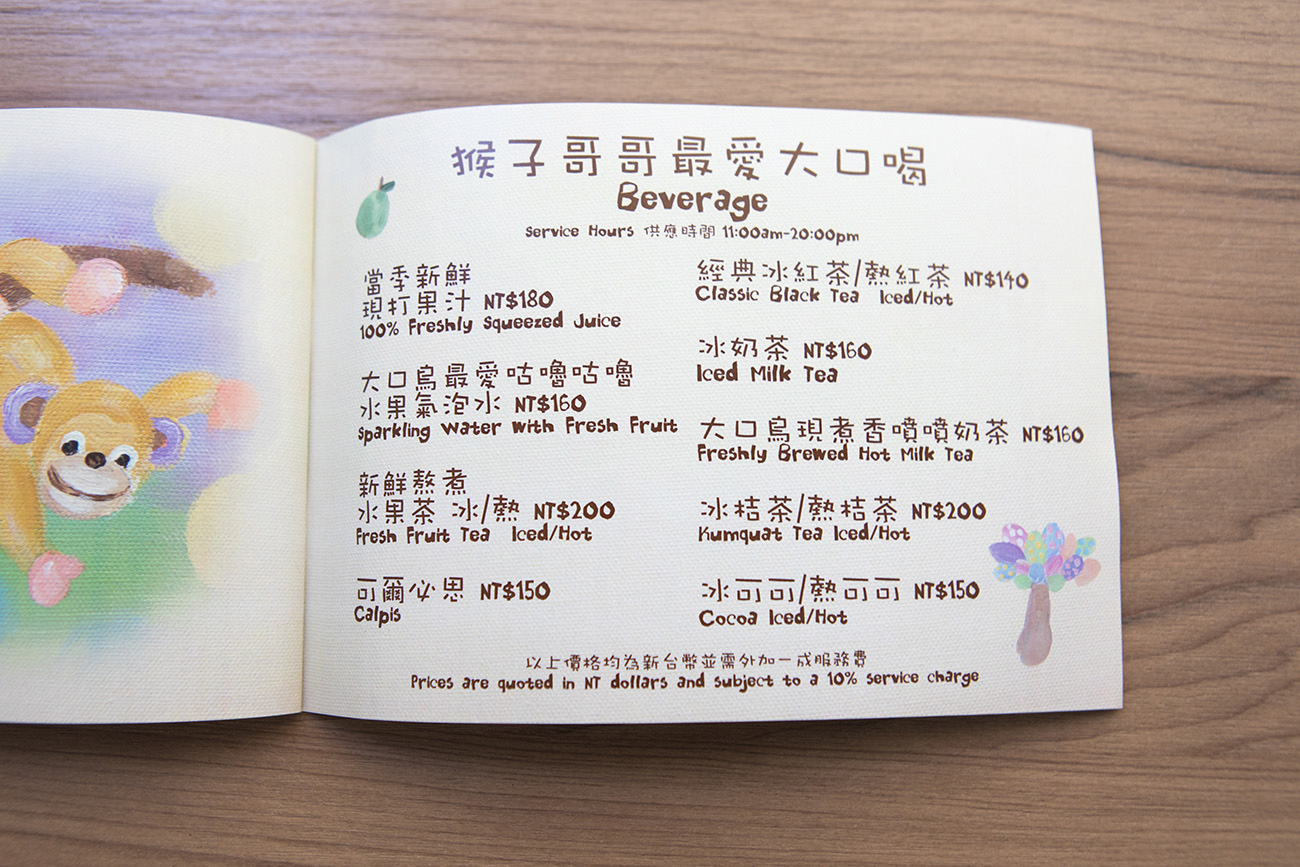 猴子哥哥最愛大口喝
Beverage
Service Hours 供應時間 11:00am-20:00pm
當季新鮮
現打果汁 NT$180
100% Freshly Squeezed Juice
大口鳥最愛咕嚕咕嚕
水果氣泡水 NT$160
Sparkling Water with Fresh Fruit
新鮮熬煮
水果茶 冰/熱 NT$200
Fresh Fruit Tea Iced/Hot
可爾必思 NT$150
Calpis
經典冰紅茶/熱紅茶 NT$140
Classic Black Tea Iced/Hot
冰奶茶 NT$160
Iced Milk Tea
大口鳥現煮香噴噴奶茶 NT$160
Freshly Brewed Hot Milk Tea
冰桔茶/熱桔茶 NT$200
Kumquat Tea Iced/Hot
冰可可/熱可可 NT$150
Cocoa Iced/Hot
以上價格均為新台幣並需外加一成服務費
Prices are quoted in NT dollars and subject to a 10% service charge